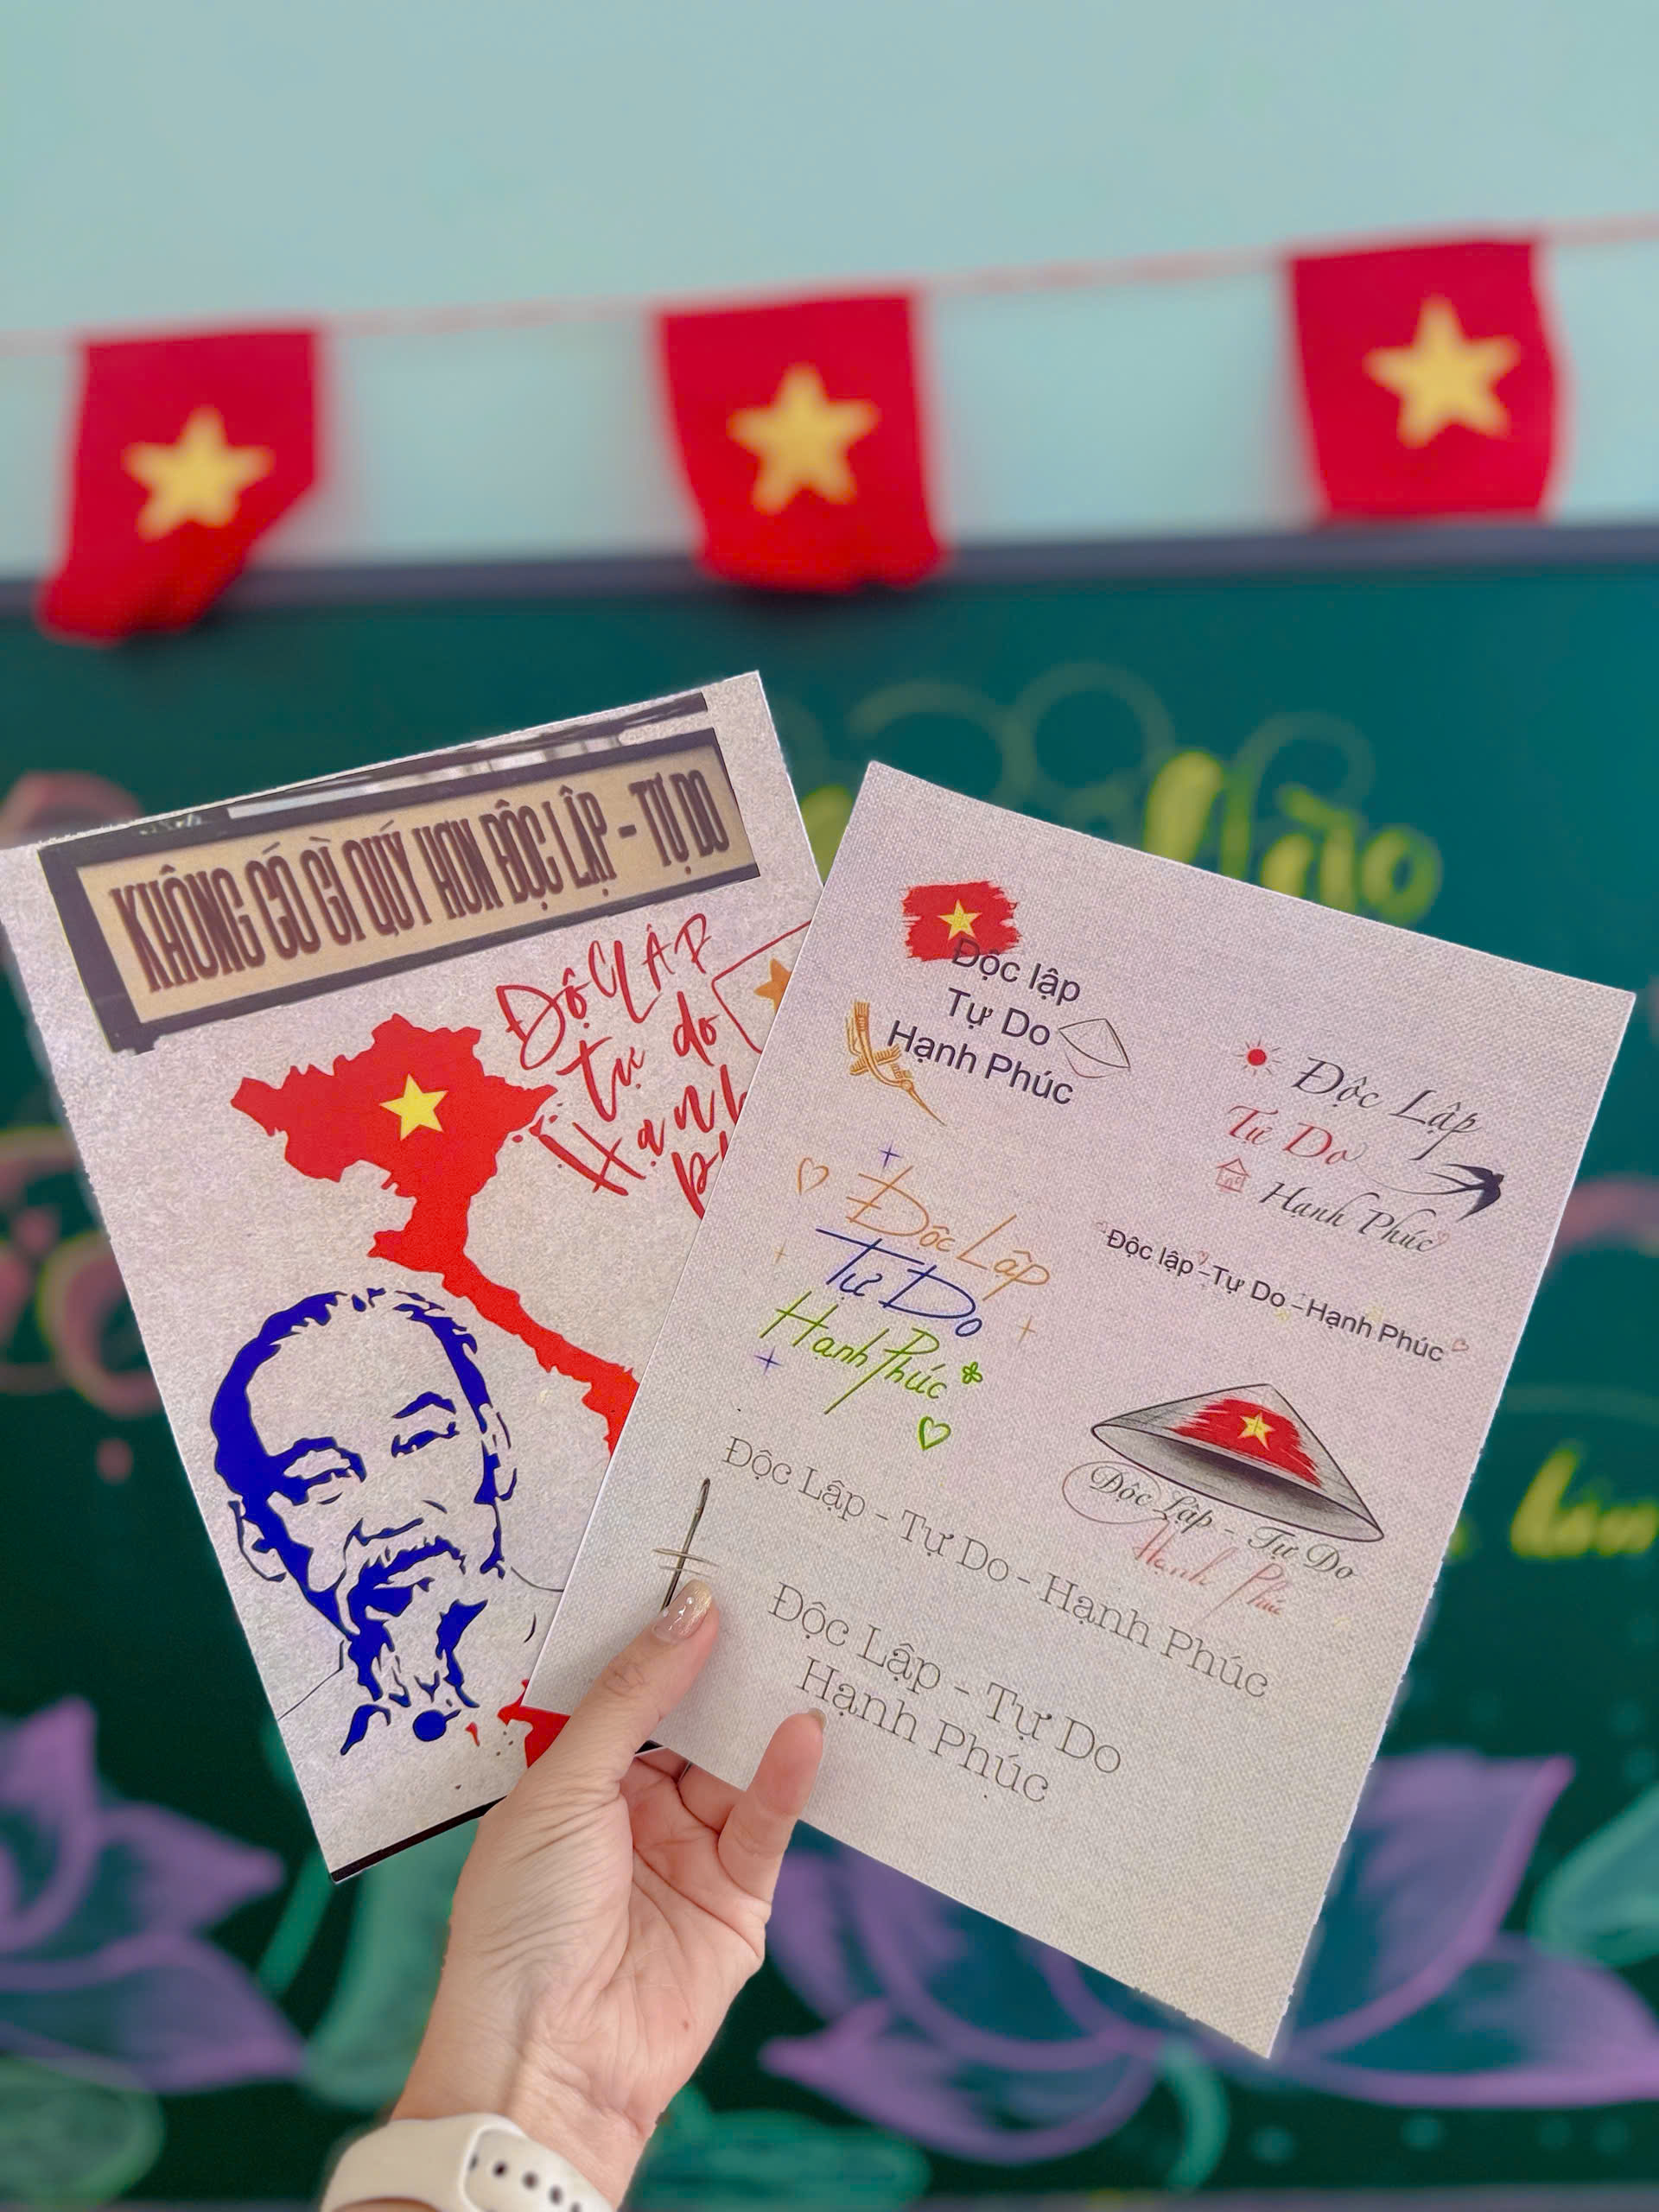 KHÔNG CÓ GÌ QUÝ HƠN ĐỘC LẬP - TỰ DO
ĐỘC LẬP
tự do
Hạnh
Độc lập
Tự Do
Hạnh Phúc
Độc Lập
Tự Do
Hạnh Phúc
Độc Lập
Tự Do
Hạnh Phúc
Độc lập - Tự Do - Hạnh Phúc
Độc Lập - Tự Do
Hạnh Phúc
Độc Lập - Tự Do - Hạnh Phúc
Độc Lập - Tự Do
Hạnh Phúc